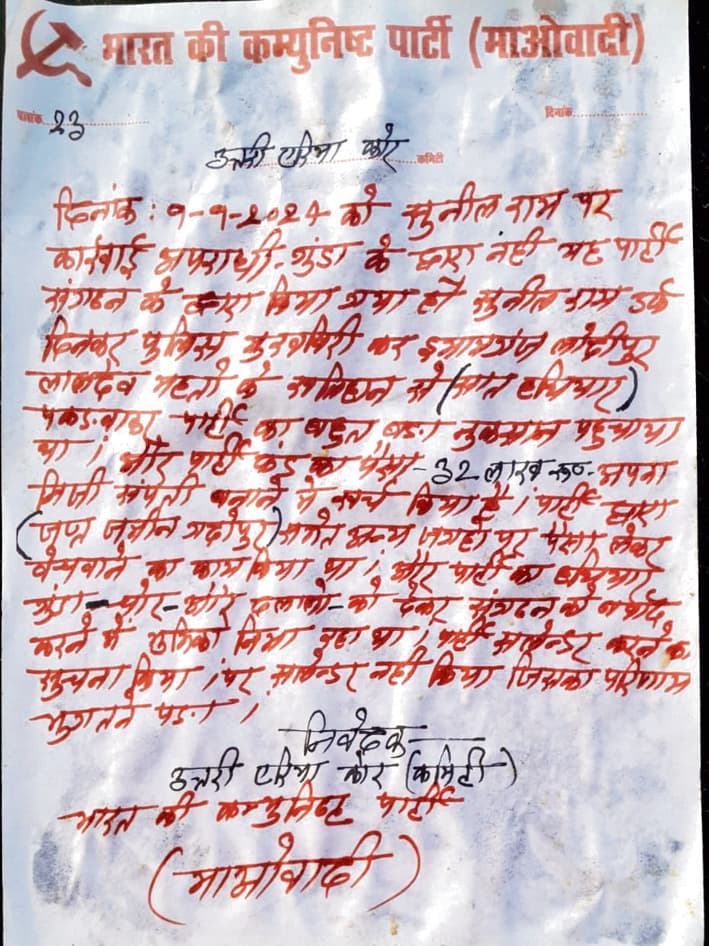 भारत की कम्युनिष्ट पार्टी (माओवादी)
पत्रांक 23 दिनांक
उत्तरी एरिया कोर कमिटी
दिनांक : 9-9-2024 को सुनील राम पर
कार्रवाई अपराधी-गुंडा के द्वारा नंही यह पार्टी
संगठन के द्वारा किया गया है सुनील राम उर्फ
दिनकर पुलिस मुखविरी कर इमामगंज लोदीपुर
लालदेव महतो के खलिहान से (सात हथियार)
पकड़वाकर पार्टी का बहुत बड़ा नुकसान पहुचाया
था। और पार्टी फंड का पैसा - 32 लाख रू०- अपना
निजी संपती बनाने में खर्च किया है। पार्टी द्वारा
(जप्त जमीन गदोपुर) समेत अन्य जगहों पर पैसा लेकर
वेचवाने का काम किया था। और पार्टी का हथियार
गुंडा - चोर - और दलालो - को देकर संगठन को वर्वाद
करने में भुमिका निभा रहा था। पार्टी सलेन्डर करने का
सुचना किया। पर सलेन्डर नही किया जिसका परिणाम
भुगतने पड़ा।
निवेदक
उत्तरी एरिया कोर (कमिटी)
भारत की कम्युनिष्ट पार्टी
(माओवादी)